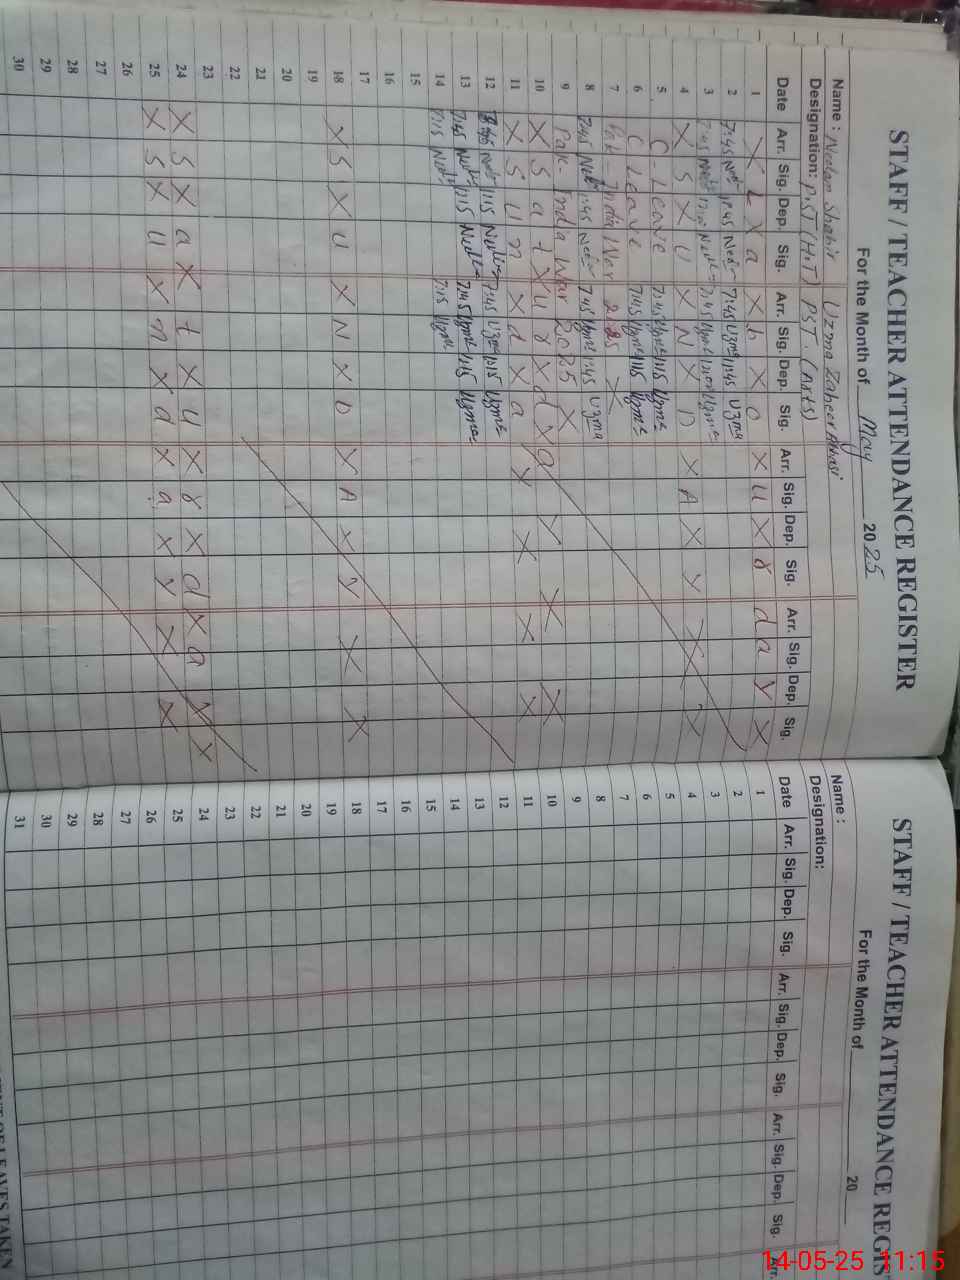 STAFF / TEACHER ATTENDANCE REGISTER
For the Month of May 2025
Name : Neelam Shabir Uzma Zaheer Abbasi
Designation: P.S.T (H.T) PST. (Arts)
Date Arr. Sig. Dep. Sig. Arr. Sig. Dep. Sig. Arr. Sig. Dep. Sig. Arr. Sig. Dep. Sig.
1 X L X a X b X o X u X r d a y X
2 7:45 1:45 7:45 Uzma 1:45 Uzma
3 7:45 7:45 Uzma Uzma
4 X S X U X N X D X A X Y X X
5 C-Leave 7:45 Uzma 1:15 Uzma
6 C Leave 7:45 Uzma 1:15 Uzma
7 Pak-India War 2025 X
8 7:45 1:45 7:45 Uzma 1:45 Uzma
9 Pak-India War 2025 X
10 X S a t X u r X d X a y X X
11 X S u n X d X a y X X X
12 1:15 7:45 Uzma 1:15 Uzma
13 7:45 1:15 7:45 Uzma 1:15 Uzma
14 7:15 7:15 Uzma
15
16
17
18 X S X U X N X D X A X Y X X
19
20
21
22
23
24 X S X a X t X u X r X d X a X X
25 X S X u X n X d X a X y X X
26
27
28
29
30
STAFF / TEACHER ATTENDANCE REGIS
For the Month of 20
Name :
Designation:
Date Arr. Sig. Dep. Sig. Arr. Sig. Dep. Sig. Arr. Sig. Dep. Sig. Arr.
1
2
3
4
5
6
7
8
9
10
11
12
13
14
15
16
17
18
19
20
21
22
23
24
25
26
27
28
29
30
31
OF LEAVES TAKEN
14-05-25 11:15